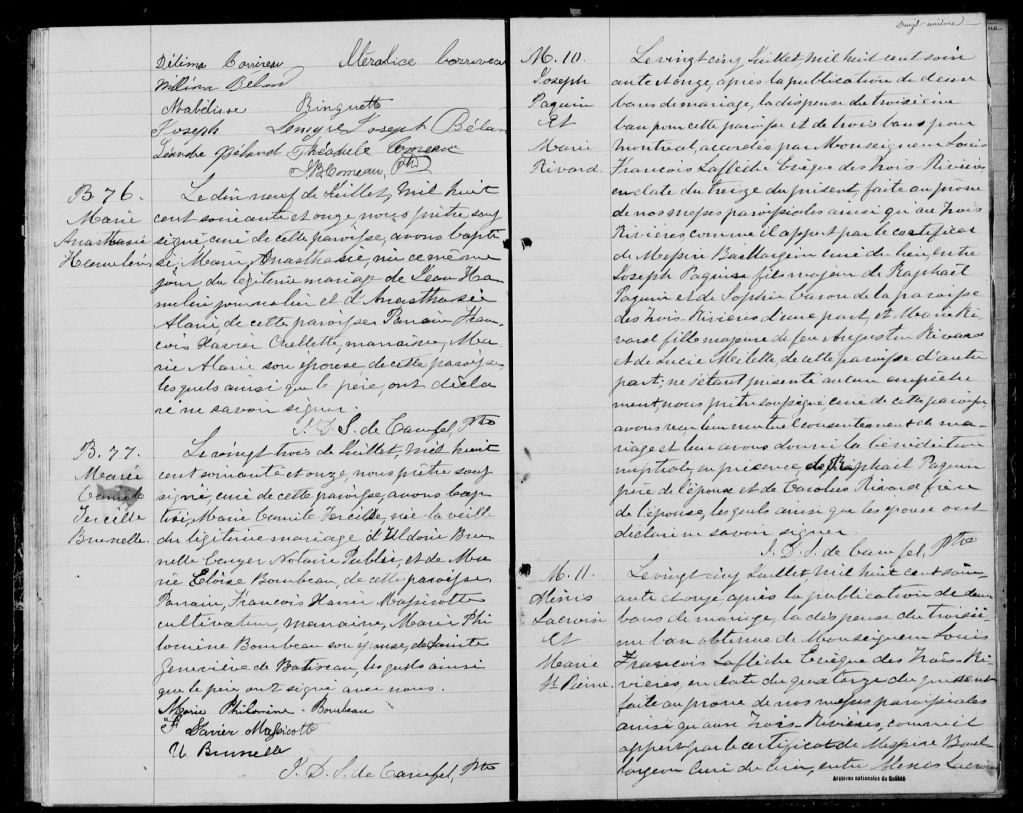 Délima Corriveau Meralice Corriveau
William Béland
Mabelisse Ringuette
Joseph Lemyre Joseph Béland
Léandre Béland Théodule Comeau
J B Comeau, Ptre
B. 76.
Marie
Anasthasie
Hamelin
Le dix neuf de Juillet, mil huit
cent soixante et onze, nous prêtre sous
signé curé de cette paroisse, avons bapti
sé, Marie, Anasthasie, née ce même
jour du légitime mariage de Jean Ha
melin journalier et d'Anasthasie
Alarie, de cette paroisse Parrain Fran-
çois Xavier Ouellette, marraine, Ma
rie Alarie son épouse, de cette paroisse,
lesquels ainsi que le père, ont décla
ré ne savoir signer.
J. D. S. de Caufel, Ptre
B. 77.
Marie
Camile
Tercille
Brunelle.
Le vingt trois de Juillet, mil huit
cent soixante et onze, nous prêtre sous
signé, curé de cette paroisse, avons bap
tisé, Marie Camile Tercille, née la veille
du légitime mariage d'Uldoric Bru
nelle Ecuyer Notaire Public, et de Ma
rie Eloïse Bourbeau, de cette paroisse.
Parrain, François Xavier Massicotte
cultivateur, marraine, Marie Phi
lomène Bourbeau son épouse, de Sainte
Geneviève de Batiscan, lesquels ainsi
que le père ont signé avec nous.
Marie Philomine - Bourbeau
F Xavier Massicotte
U Brunelle
J. D. S. de Caufel, Ptre
vingt unième
M. 10.
Joseph
Paquin
Et
Marie
Rivard.
Le vingt cinq Juillet mil huit cent soix
ante et onze, après la publication de deux
bans de mariage, la dispense du troisième
ban pour cette paroisse et de trois bans pour
Montreal, accordés par Monseigneur Louis
François Laflèche Evêque des Trois Rivières
en date du treize du présent, faite au prône
de nos messes paroissiales ainsi qu'aux Trois
Rivières, comme il appert par le certificat
de Messire Baillargeon curé du lieu, entre
Joseph Paquin fils majeur de Raphaël
Paquin et de Sophie Caron de la paroisse
des Trois-Rivières d'une part, et Marie Ri
vard fille majeure de feu Augustin Rivard
et de Lucie Milette, de cette paroisse d'autre
part; ne s'étant présenté aucun empêche
ment, nous prêtre soussigné, curé de cette paroisse,
avons reçu leur mutuel consentement de ma-
riage et leur avons donné la bénédiction
nuptiale, en présence de Raphaël Paquin
père de l'époux et de Carolus Rivard frère
de l'épouse, lesquels ainsi que les époux ont
déclaré ne savoir signer.
J. D. S. de Caufel, Ptre
M. 11.
Alexis
Lacroix
Et
Marie
St Pierre.
Le vingt cinq Juillet, mil huit cent soix-
ante et onze après la publication de deux
bans de mariage, la dispense du troisiè
me ban obtenue de Monseigneur Louis
François Laflèche Evêque des Trois-Ri-
vières, en date du quatorze du présent
faite au prône de nos messes paroissiales
ainsi qu'aux Trois-Rivières, comme il
appert par le certificat de Messire Bail
largeon Curé du lieu, entre Alexis Lacroix
Archives nationales du Québec